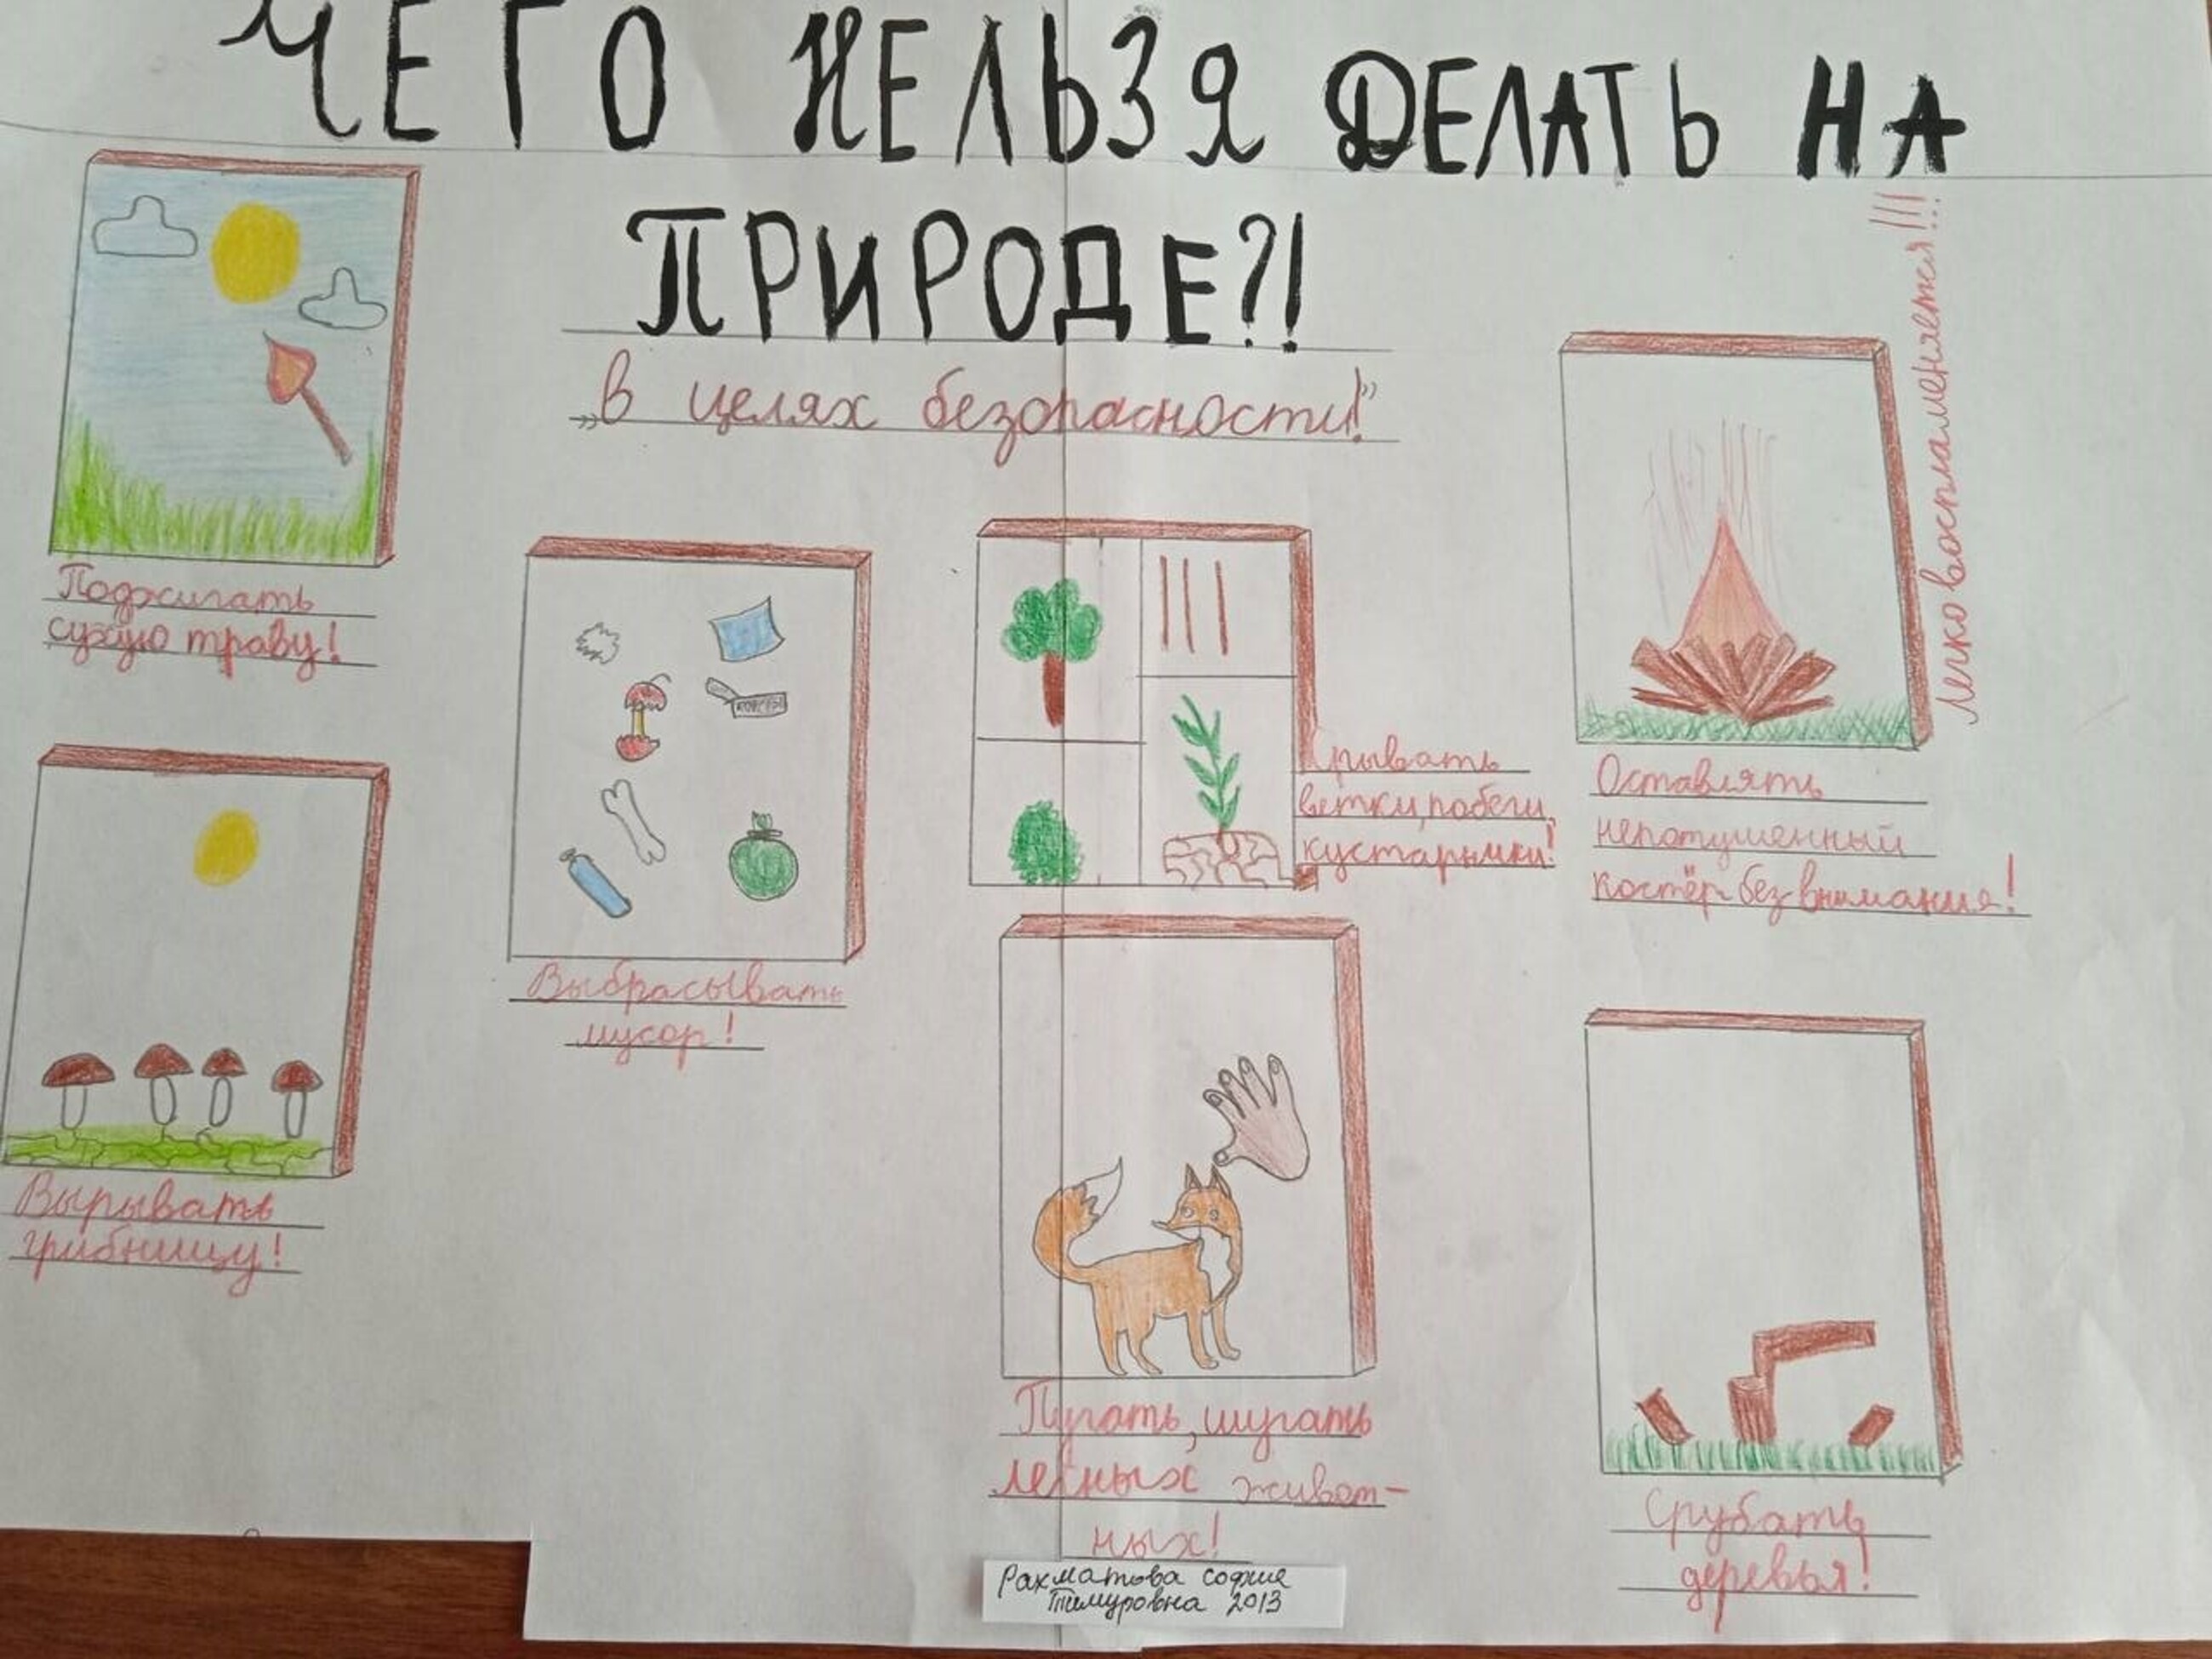 ЧЕГО НЕЛЬЗЯ ДЕЛАТЬ НА
ПРИРОДЕ?!
„В целях безопасности!”
Поджигать
сухую траву!
Вырывать
грибницу!
Выбрасывать
мусор!
Срывать
ветки, побеги,
кустарники!
Пугать, шугать
лесных живот-
ных!
Легко воспламеняется!!!
Оставлять
непотушенный
костёр без внимания!
Срубать
деревья!
Рахматова София
Тимуровна 2013